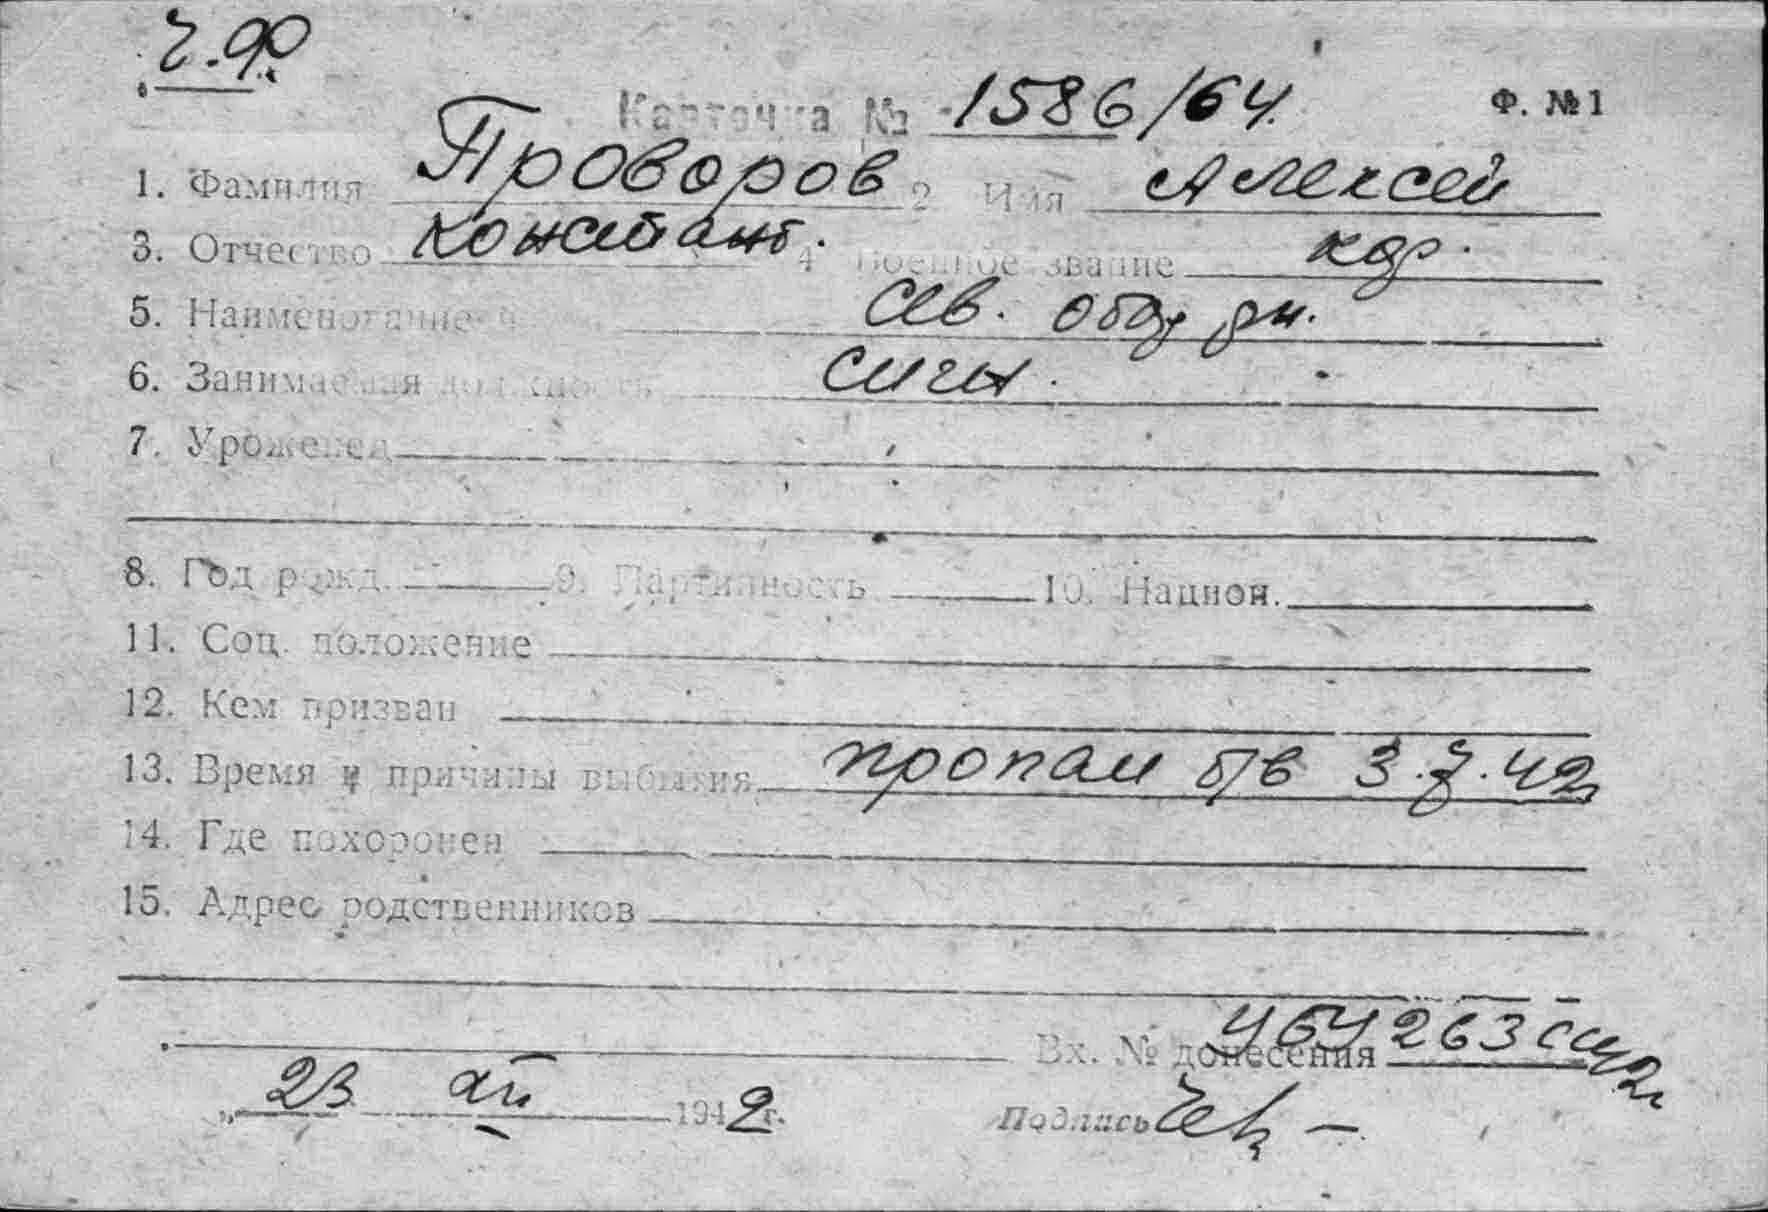 Ч.Ф
Карточка № 1586/64. Ф. № 1
1. Фамилия Проворов 2 Имя Алексей
3. Отчество Констант. 4 Военное звание кдр.
5. Наименование ч сев.
6. Занимаемая должность сигн.
7. Уроженец
8. Год рожд. 9. Партийность 10. Национ.
11. Соц. положение
12. Кем призван
13. Время и причины выбытия пропал б/в 3.7.42г
14. Где похоронен
15. Адрес родственников
Вх. № донесения
„ 23 XII 1942 г. Подпись